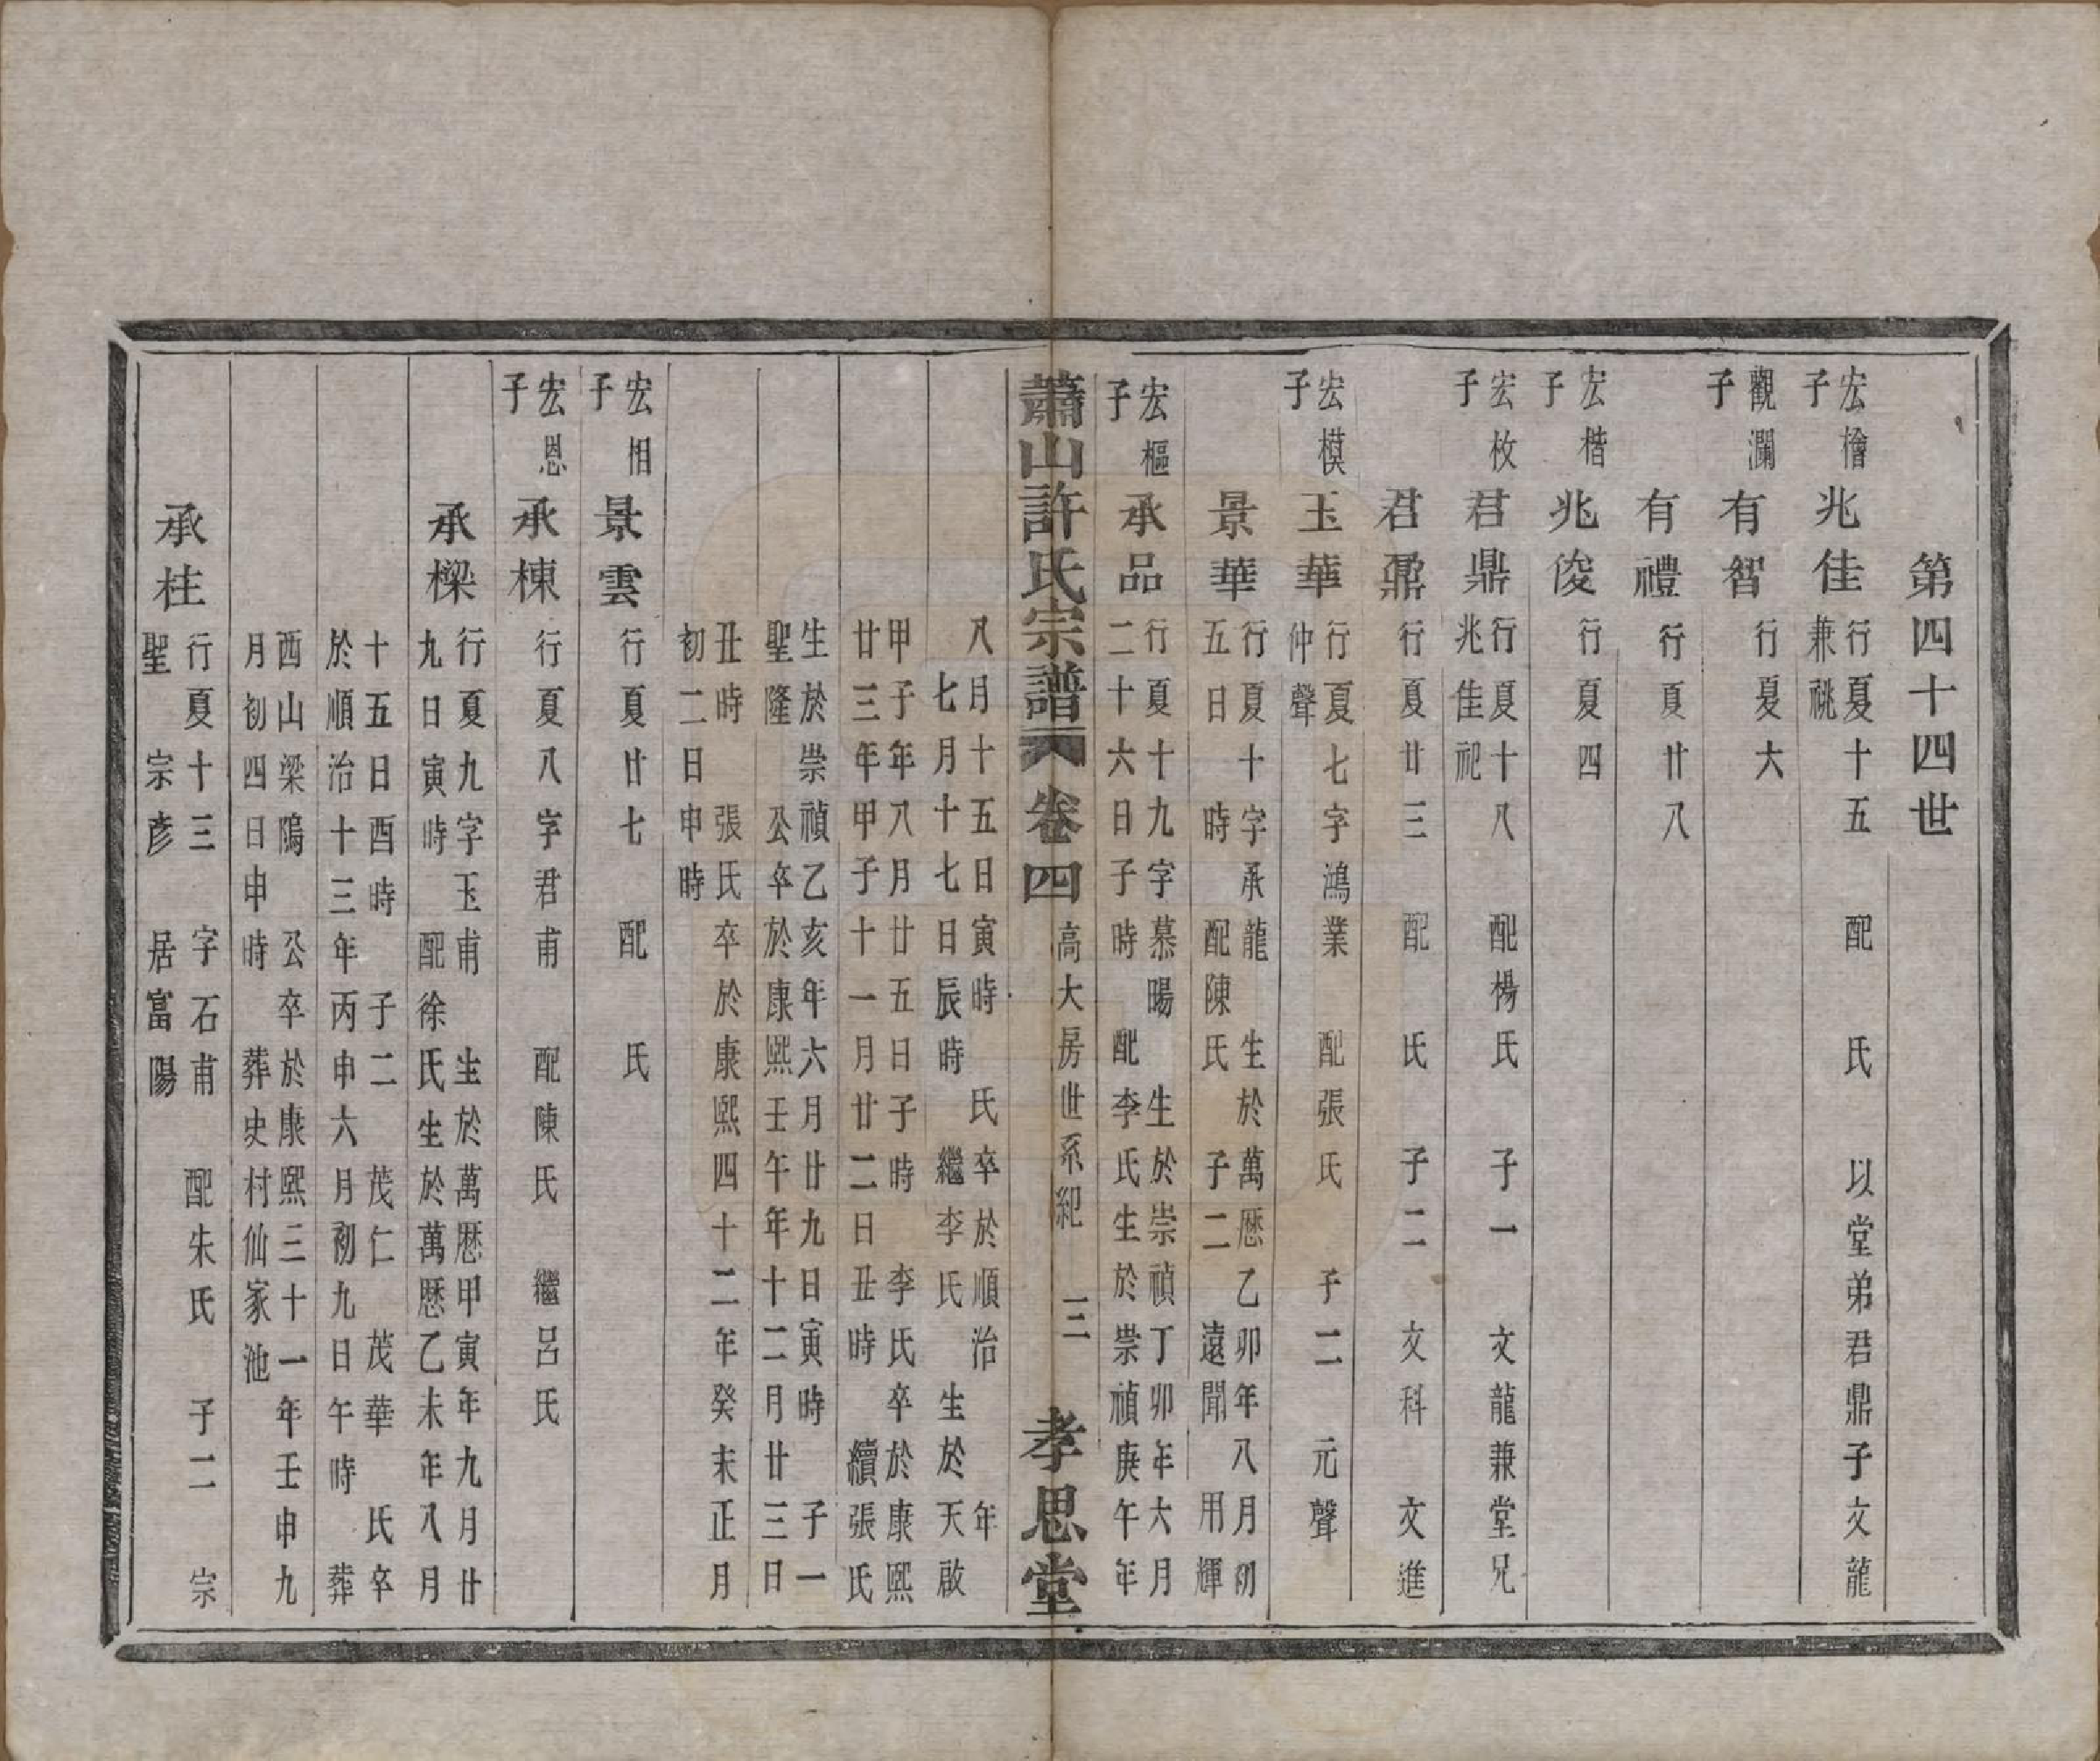 第四十四世
宏檜子
兆佳
行夏十五 配 氏 以堂弟君鼎子文龍
兼祧
觀瀾子
有智
行夏大
有禮
行夏廿八
宏楷子
兆俊
行夏四
宏枚子
君鼎
行夏十八 配楊氏 子一 文龍兼堂兄
兆佳祀
君鼐
行夏廿三 配 氏 子二 文科 文進
宏模子
玉華
行夏七字鴻業 配張氏 子二 元聲
仲聲
景華
行夏十字承龍 生於萬厯乙卯年八月初
五日 時 配陳氏 子二 遠聞 用輝
宏樞子
承品
行夏十九字慕暘 生於崇禎丁卯年六月
二十六日子時 配李氏生於崇禎庚午年
蕭山許氏宗譜 卷四 高大房世系紀 三 孝思堂
八月十五日寅時 氏卒於順治 年
七月十七日辰時 繼李氏 生於天啟
甲子年八月廿五日子時 李氏卒於康熙
廿三年甲子十一月廿二日丑時 續張氏
生於崇禎乙亥年六月廿九日寅時 子一
聖隆 公卒於康熙壬午年十二月廿三日
丑時 張氏卒於康熙四十二年癸未正月
初二日申時
宏相子
景雲
行夏廿七 配 氏
宏恩子
承棟
行夏八字君甫 配陳氏 繼呂氏
承樑
行夏九字玉甫 生於萬厯甲寅年九月廿
九日寅時 配徐氏生於萬厯乙未年八月
十五日酉時 子二 茂仁 茂華 氏卒
於順治十三年丙申六月初九日午時 葬
西山梁隝 公卒於康熙三十一年壬申九
月初四日申時 葬史村仙家池
承柱
行夏十三 字石甫 配朱氏 子二 宗
聖 宗彥 居富陽